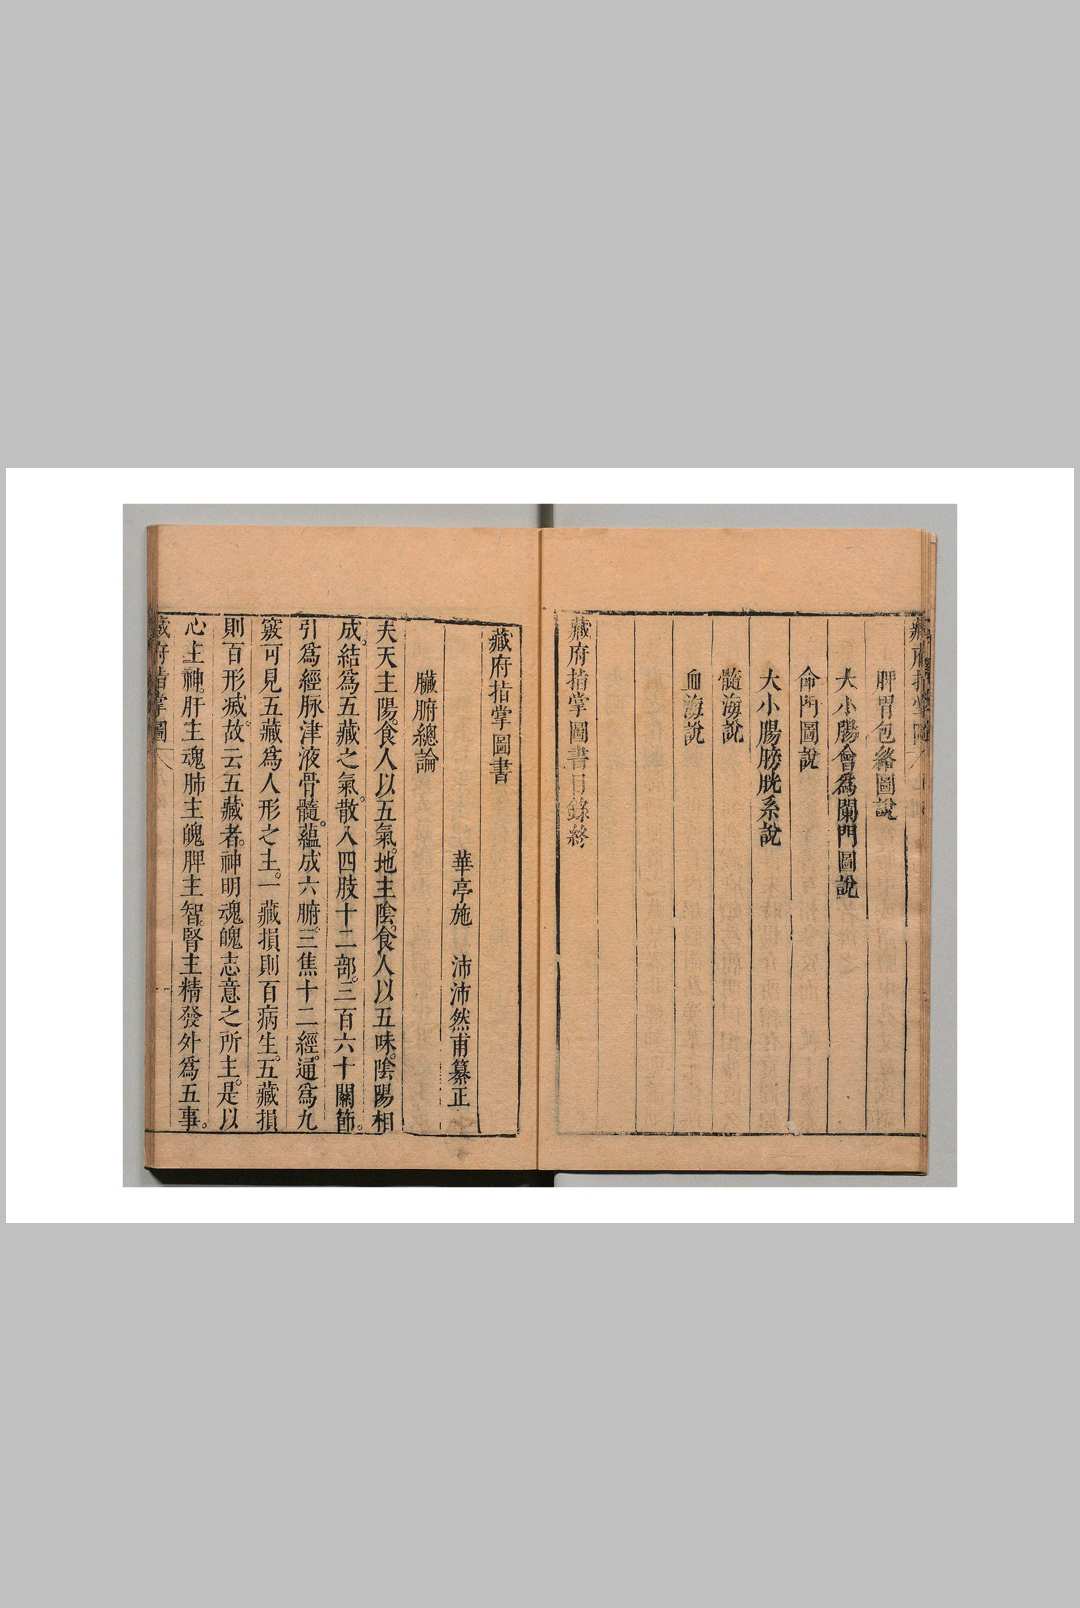 脾胃包絡圖說
大小腸會爲闌門圖說
命門圖說
大小腸膀胱系說
髓海說
血海說
藏府指掌圖書目錄終
藏府指掌圖書
華亭施 沛沛然甫纂正
臟腑總論
夫天主陽。食人以五氣。地主陰。食人以五味。陰陽相
成。結爲五藏之氣。散入四肢十二部。三百六十關節。
引爲經脉津液骨髓。蘊成六腑。三焦十二經。通爲九
竅可見五藏爲人形之主。一藏損則百病生。五藏損
則百形滅。故云五藏者。神明魂魄志意之所主。是以
心主神。肝主魂肺主魄脾主智。腎主精發外爲五事。
藏府指掌圖